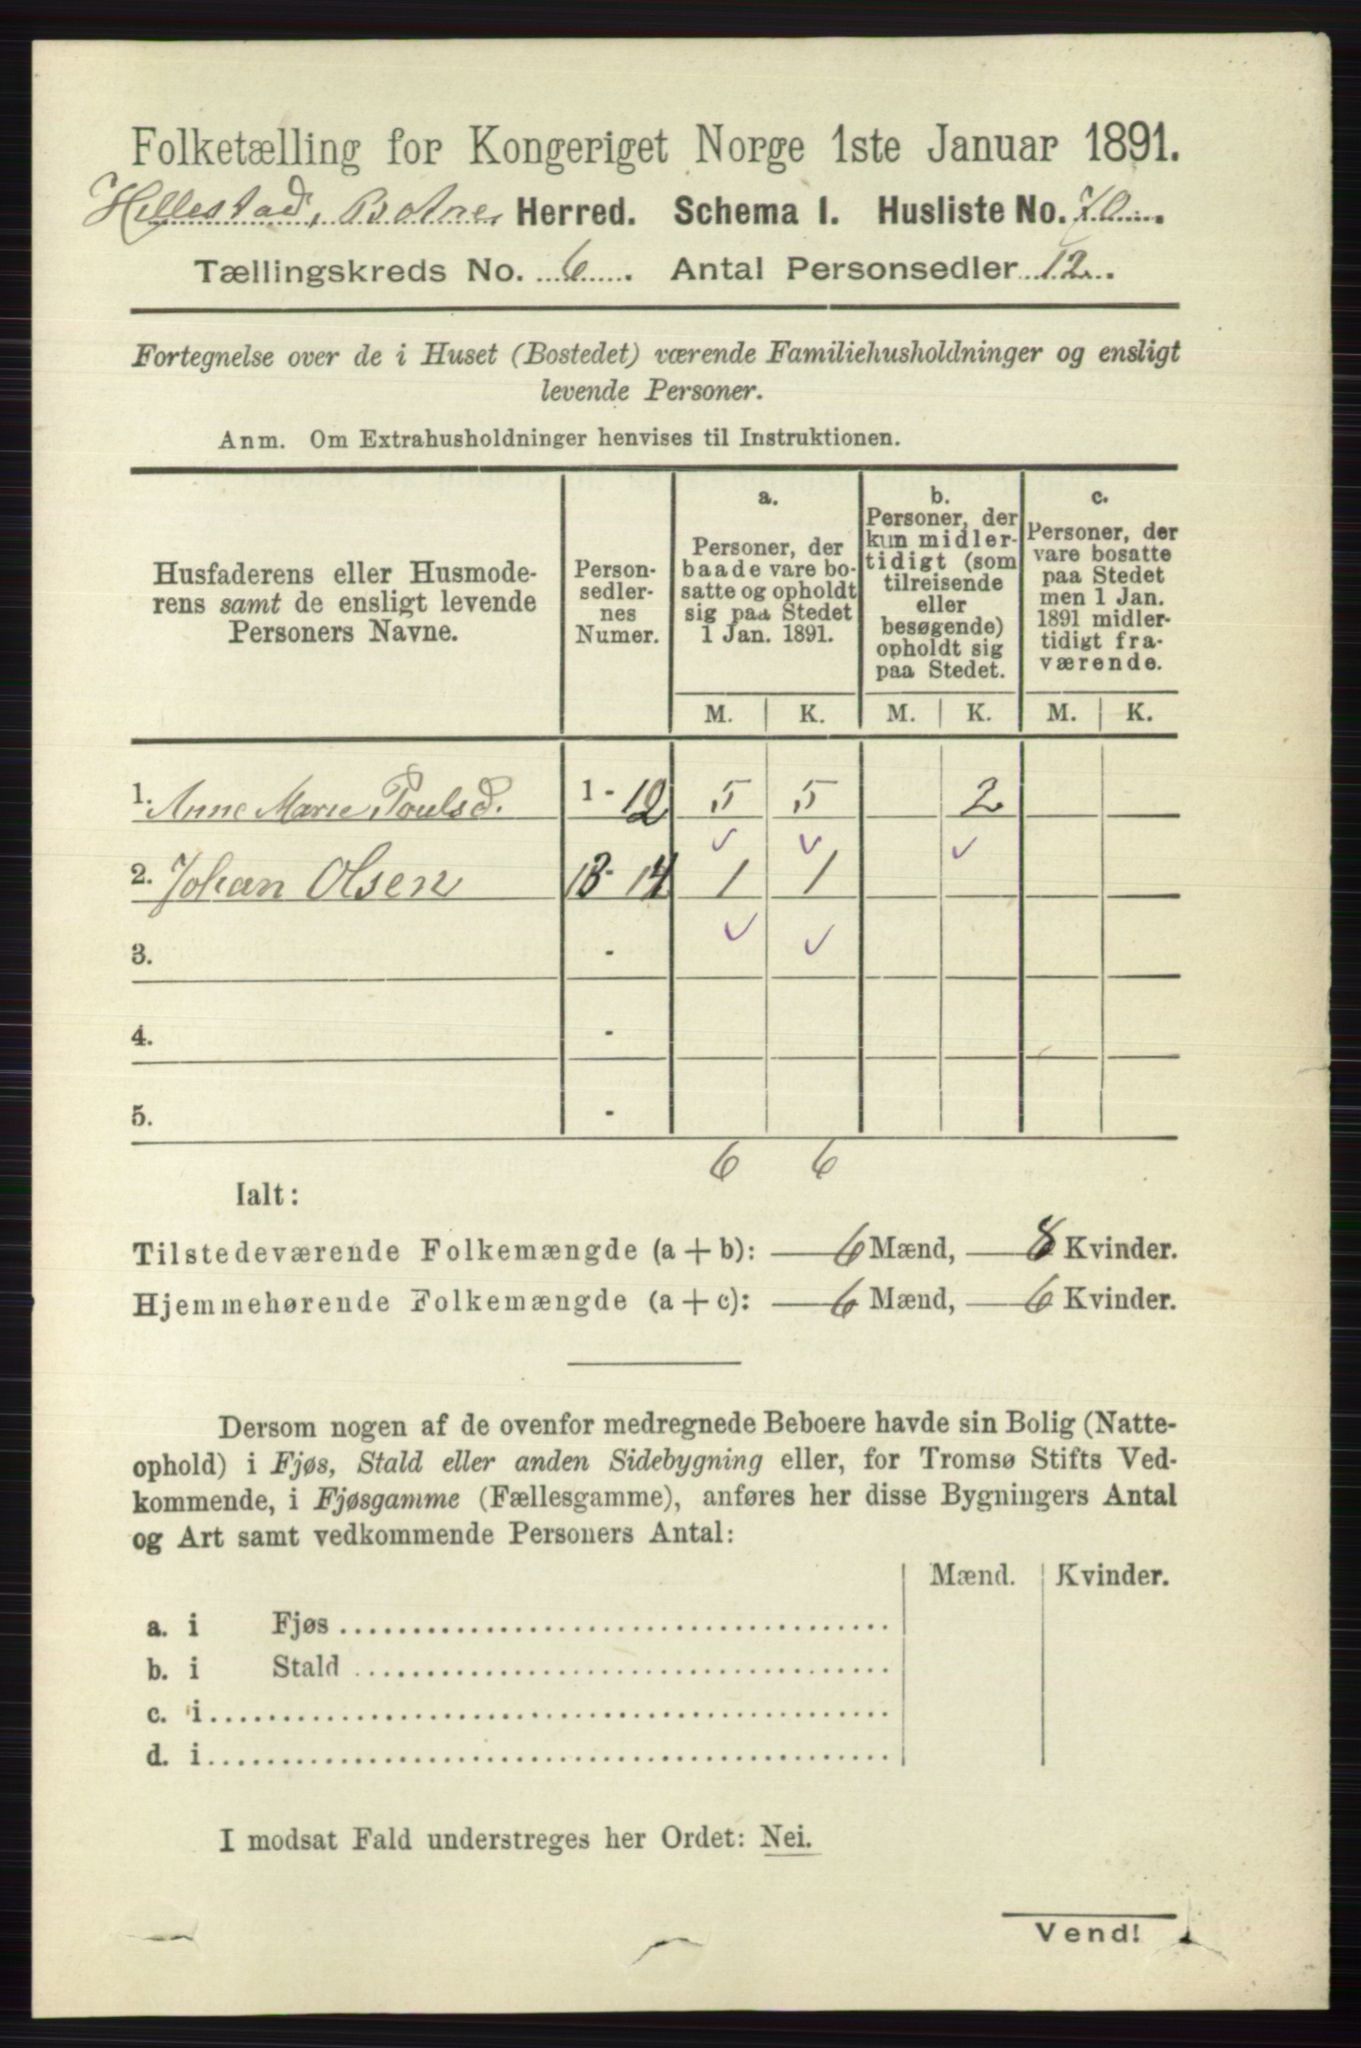 Folketælling for Kongeriget Norge 1ste Januar 1891.
Hillestad, Botne Herred. Schema I. Husliste No. 70
Tællingskreds No. 6. Antal Personsedler 12.
Fortegnelse over de i Huset (Bostedet) værende Familiehusholdninger og ensligt
levende Personer.
Anm. Om Extrahusholdninger henvises til Instruktionen.
Husfaderens eller Husmode-
rens samt de ensligt levende
Personers Navne.
Person-
sedler-
nes
Numer.
a.
Personer, der
baade vare bo-
satte og opholdt
sig paa Stedet
1 Jan. 1891.
b.
Personer, der
kun midler-
tidigt (som
tilreisende
eller
besøgende)
opholdt sig
paa Stedet.
c.
Personer, der
vare bosatte
paa Stedet
men 1 Jan.
1891 midler-
tidigt fra-
værende.
M. K. M. K. M. K.
1. Anne Marie Poulsd. 1 - 12 5 5 2
2. Johan Olsen 13 - 14 1 1
3. -
4. -
5. -
6 6
Ialt:
Tilstedeværende Folkemængde (a + b): 6 Mænd, 8 Kvinder.
Hjemmehørende Folkemængde (a + c): 6 Mænd, 6 Kvinder.
Dersom nogen af de ovenfor medregnede Beboere havde sin Bolig (Natte-
ophold) i Fjøs, Stald eller anden Sidebygning eller, for Tromsø Stifts Ved-
kommende, i Fjøsgamme (Fællesgamme), anføres her disse Bygningers Antal
og Art samt vedkommende Personers Antal:
Mænd. Kvinder.
a. i Fjøs
b. i Stald
c. i
d. i
I modsat Fald understreges her Ordet: Nei.
Vend!